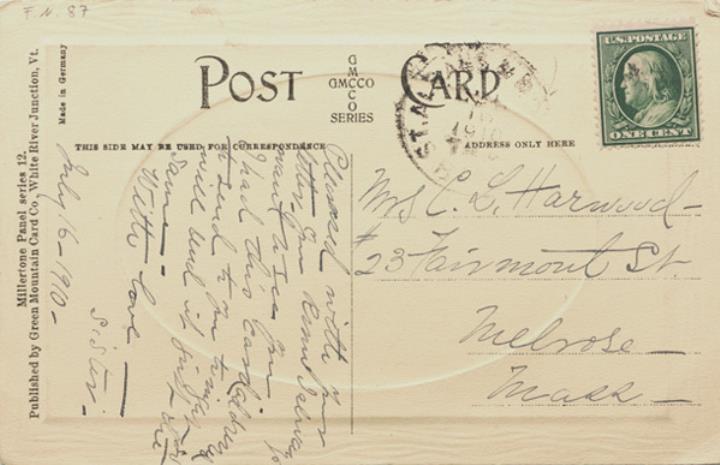 F. N. 87
Millertone Panel series 12.
Published by Green Mountain Card Co., White River Junction, Vt.
Made in Germany
POST CARD
GMCCO
GMCCO
SERIES
THIS SIDE MAY BE USED FOR CORRESPONDENCE
ADDRESS ONLY HERE
ST. ALBANS
1910
U.S. POSTAGE
ONE CENT
Mrs C. L. Harwood-
# 23 Fairmont St.
Melrose-
Mass-
Pleased with your
letter
want to see you
I had this card
to send to you
will send it
same-
With love
Sister-
July 16-1910-